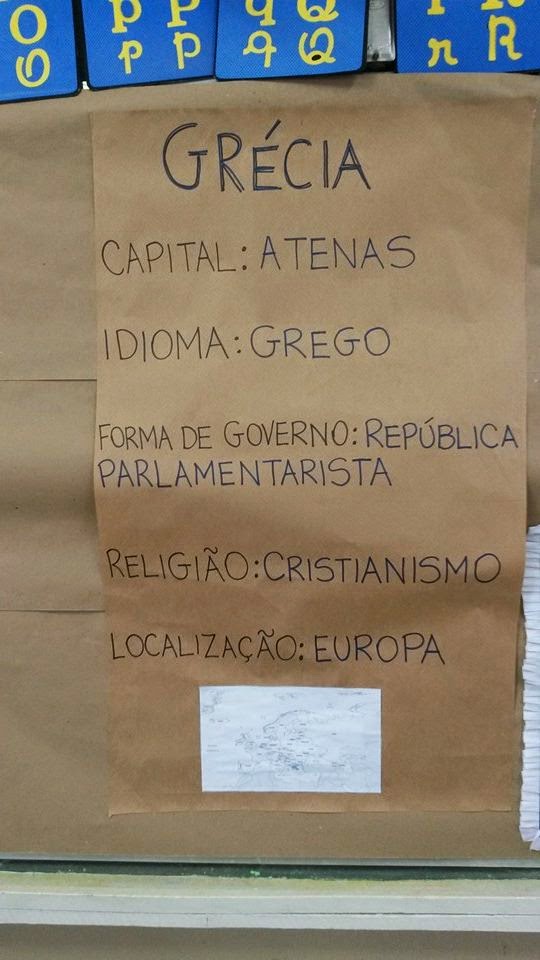 O p P q Q r R
O p P q Q r R
GRÉCIA
CAPITAL: ATENAS
IDIOMA: GREGO
FORMA DE GOVERNO: REPÚBLICA
PARLAMENTARISTA
RELIGIÃO: CRISTIANISMO
LOCALIZAÇÃO: EUROPA